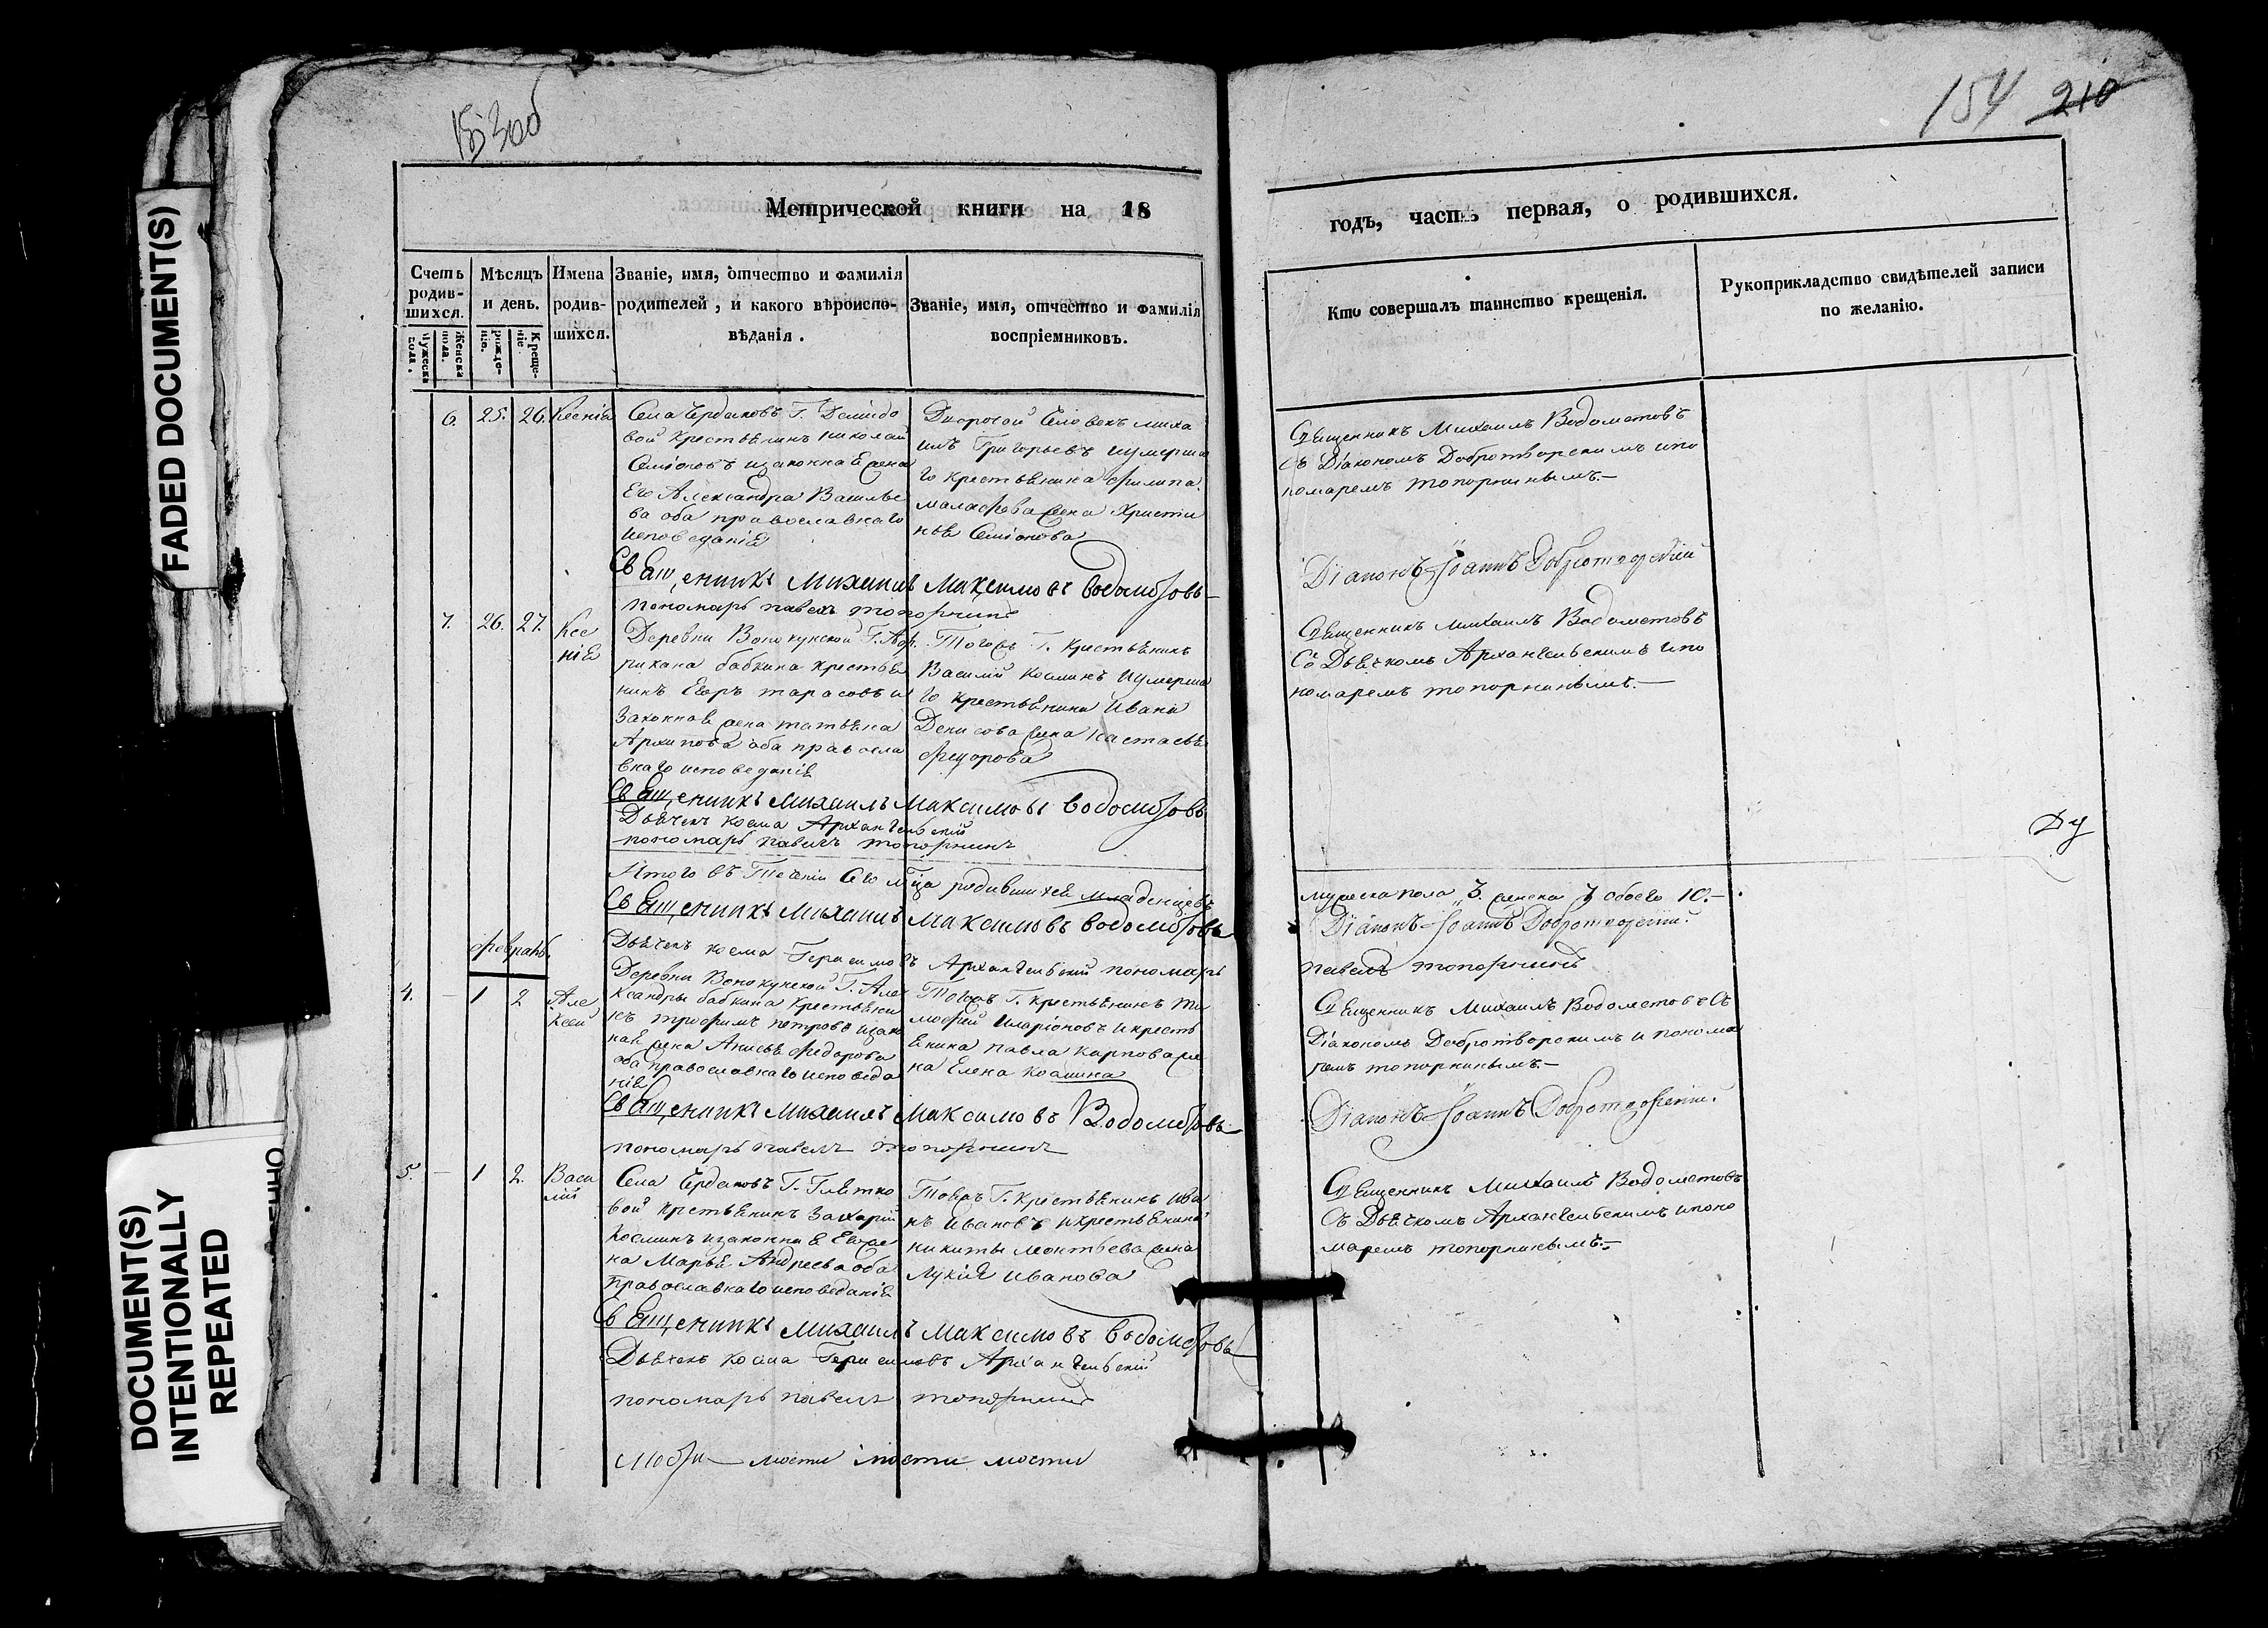 153 об
154 210
Метрической книги на 18
годъ, часть первая, о родившихся.
Счетъ родив-шихся.
Мужеска пола.
Женска пола.
Мѣсяцъ и день.
рожде-нія.
Креще-нія.
Имена родив-шихся.
Званіе, имя, отчество и фамилія
родителей, и какого вѣроиспо-
вѣданія.
Званіе, имя, отчество и фамилія
воспріемниковъ.
Кто совершалъ таинство крещенія.
Рукоприкладство свидѣтелей записи
по желанію.
6. 25. 26. Ксеніѧ
Села Чердаковъ Г. Демидо
вой крестьѧнинъ Николай
Семіоновъ изаконнаѧ жена
Его Александра Василье
ва оба православнаго
исповеданіѧ
Дворовой человекъ Миха
илъ Григорьевъ иумерша
го крестьѧнина Филипа
Малафѣева жена Христи
ньѧ Семіонова
Свѧщенникъ Михаилъ Водометовъ
съ Діакономъ Добротворскимъ ипо
номаремъ Топорнинымъ.-
Свѧщенникъ Михаилъ Максимовъ Водометовъ
Діаконъ Іоаннъ Добротворскій
пономарь Павелъ Топорнинъ
7. 26. 27. Ксе
ніѧ
Деревни Вонокунской Г. Аф
рикана Бабкина крестьѧ
нинъ Егоръ Тарасовъ и
законнаѧ жена Татьѧна
Архипова оба правосла
внаго исповеданіѧ
Тогожъ Г. крестьѧнинъ
Василій Косминъ иумерша
го крестьѧнина Ивана
Денисова жена Настасьѧ
Федорова
Свѧщенникъ Михаилъ Водометовъ
Съ Дьѧчкомъ Архангельскимъ ипо
номаремъ Топорнинымъ.-
Свѧщенникъ Михаилъ Максимовъ Водометовъ
Дьѧчекъ Косма Архангельскій
пономарь Павелъ Топорнинъ
Итого въ Теченіи Сего мца родившихсѧ младенцевъ
мужеска пола 3. женска 7 обоего 10.-
Свѧщенникъ Михаилъ Максимовъ Водометовъ
Діаконъ Іоаннъ Добротворскій
Дьѧчекъ Косма Герасимовъ Архангельскій пономарь
Павелъ Топорнинъ
Февраль.
4. - 1 2 Але
ксей
Деревни Вонокунской Г. Але
ксандры Бабкина крестьѧни
нъ Трофимъ Петровъ изако
наѧ жена Анисьѧ Федорова
оба православнаго исповеда
ніѧ
Тогожъ Г. крестьѧнинъ Ти
мофей Иларіоновъ икресть
ѧнина Павла Карпова же
на Елена Космина
Свѧщенникъ Михаилъ Водометовъ Съ
Діакономъ Добротворскимъ и понома
ремъ Топорнинымъ.-
Свѧщенникъ Михаилъ Максимовъ Водометовъ
Діаконъ Іоаннъ Добротворскій.
пономарь Павелъ Топорнинъ
5. - 1 2. Васи
лій
Села Чердаковъ Г. Глетко
вой крстьѧнинъ Захарій
Косминъ изаконнаѧ Его же
на Марьѧ Андреева оба
православнаго исповеданіѧ
Тогожъ Г. крестьѧнинъ Ива
нъ Ивановъ икрестьѧнина
Никиты Леонтьева жена
Лукіѧ Иванова
Свѧщенникъ Михаилъ Водометовъ
Съ Дьѧчкомъ Архангельскимъ ипоно
маремъ Топорнинымъ.-
Свѧщенникъ Михаилъ Максимовъ Водометовъ
Дьѧчекъ Косма Герасимовъ Архангельскій
пономарь Павелъ Топорнинъ
FADED DOCUMENT(S)
DOCUMENT(S)
INTENTIONALLY
REPEATED